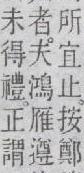 所宜止。按鄭
者。夫鴻雁遵
未得禮。正謂